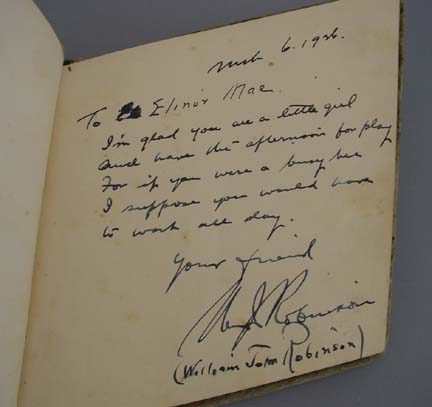 Mch 6. 1926.
To Elinor Mae.
I'm glad you are a little girl
and have the afternoon for play
For if you were a busy bee
I suppose you would have
to work all day.
Your friend
Wm J Robinson
(William John Robinson)